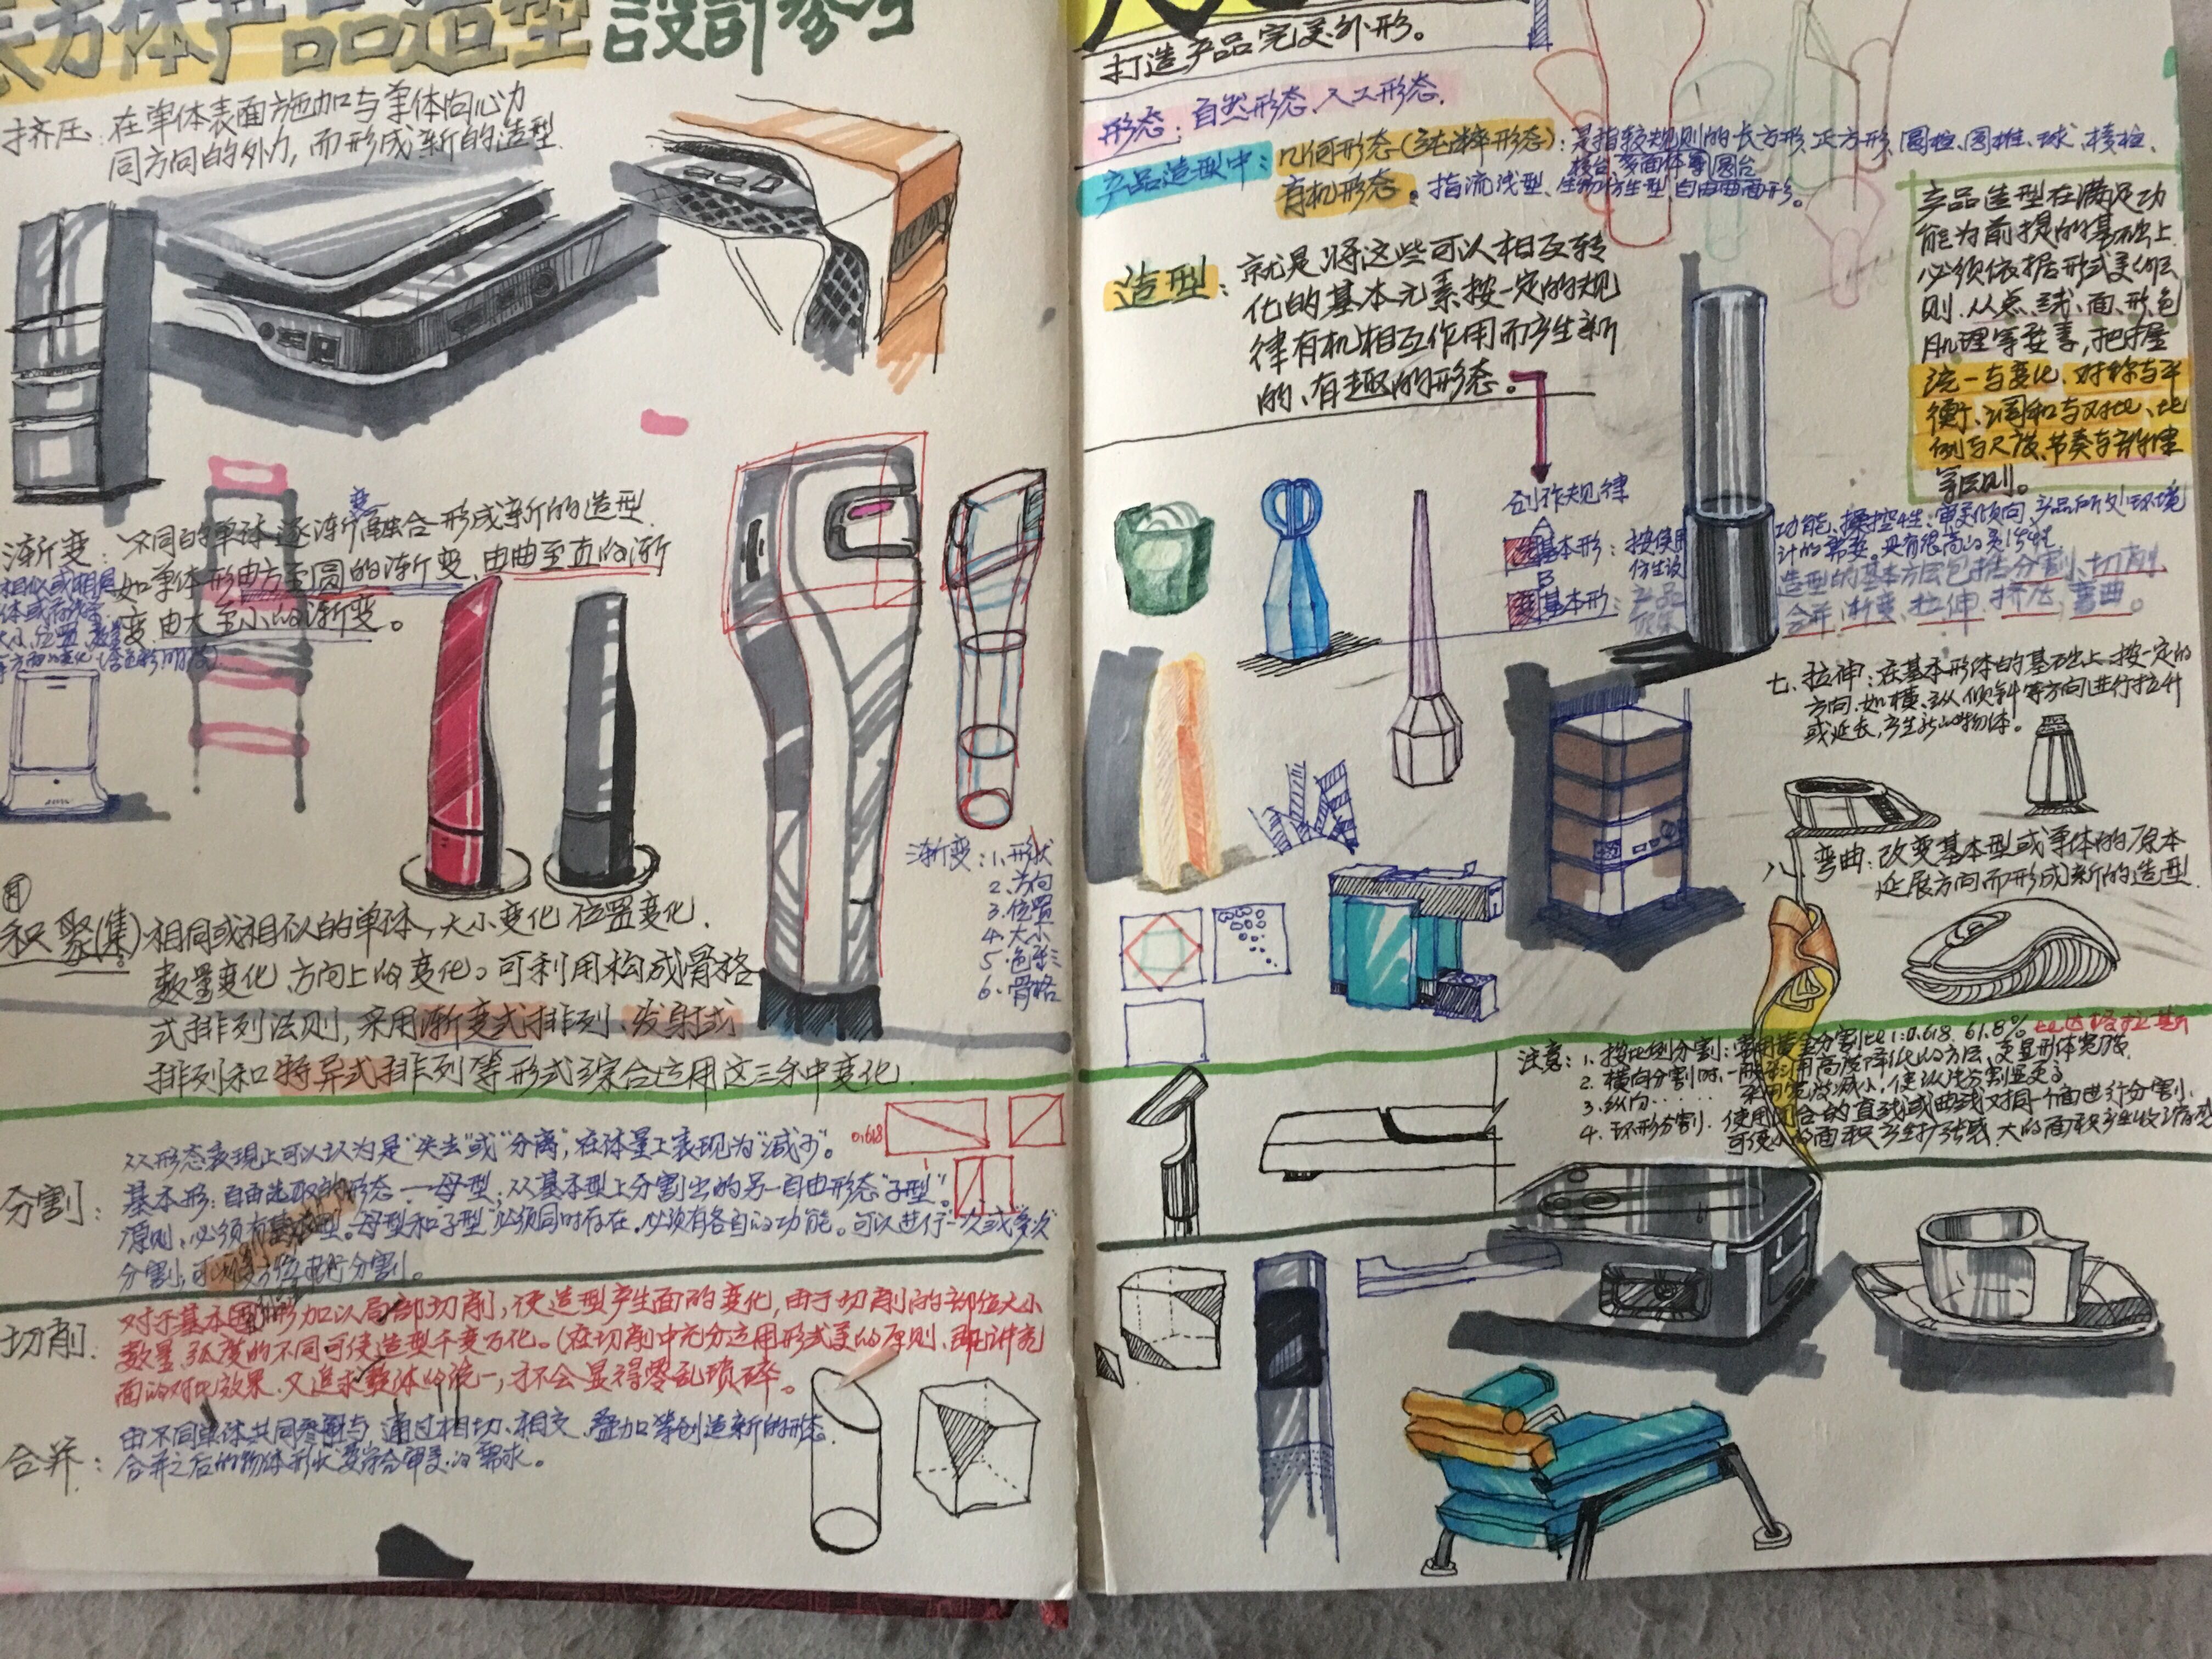 长方体产品造型設計参考
挤压：在单体表面施加与单体向心力
同方向的外力，而形成新的造型
渐变：不同的单体逐渐融合形成新的造型.
变
如单体形由方至圆的渐变、由曲至直的渐
变、由大至小的渐变。
相似或相同
大小、位置、数量
渐变：1.形状
2.方向
3.位置
4.大小
5.色彩
6.骨格
积聚(集)：相同或相似的单体，大小变化 位置变化.
数量变化、方向上的变化。可利用构成骨格
式排列法则，采用渐变式排列、发射式
排列和特异式排列等形式综合运用这三余中变化.
0.618
分割：
从形态表现上可以认为是“失去”或“分离”，在体量上表现为“减少”。
基本形：自由选取的形态——母型；从基本型上分割出的另一自由形态“子型”。
原则、必须有基本型。母型和子型“必须同时存在.必须有各自的功能。可以进行一次或“多次”
分割，可以进行分割。
切削.
对于基本形加以局部切削，使造型产生面的变化，由于切削的部位大小
数量、弧度的不同可使造型千变万化。(在切削中充分运用形式美的原则、既讲究
面的对比效果、又追求整体的统一，才不会显得零乱琐碎。
合并：
由不同单体共同参与，通过相切、相交、叠加等创造新的形态.
合并之后的物体形状要符合审美的需求。
打造产品完美外形。
形态：自然形态、人工形态.
产品造型中：几何形态(纯粹形态)：是指较规则的长方形、正方形、圆柱、圆椎、球、棱柱、
棱台 多面体等 圆台
有机形态。指流浅型、生物仿生型、自由曲面形。
造型：就是将这些可以相互转
化的基本元素按一定的规
律有机相互作用而产生新
的、有趣的形态。
产品造型在满足功
能为前提的基础上
必须依据形式美的法
则.从点、线、面、形、色
肌理等要素，把握
统一与变化、对称与平
衡、调和与对比、比
例与尺度、节奏与韵律
等法则。
创作规律
A
基本形：按使用功能、操控性、审美倾向、产品所处环境
仿生设计的需要。具有很高的灵活性
B
基本形：产品造型的基本方法包括分割、切削
合并、渐变、拉伸、挤压，弯曲。
七、拉伸：在基本形体的基础上.按一定的
方向.如横、纵、倾斜等方向进行拉升
或延长，产生新的物体。
八、弯曲：改变基本型或单体的原本
延展方向而形成新的造型.
注意：1、按比例分割：常用黄金分割比1:0.618 61.8%
2. 横向分割时.一般采用高度降低的方法、更显形体宽放.
3. 纵向······采用宽度减小，使纵线分割显更高
4. 环形分割. 使用闭合的直线或曲线对同一个面进行分割.
可使小的面积产生扩张感.大的面积产生收缩感